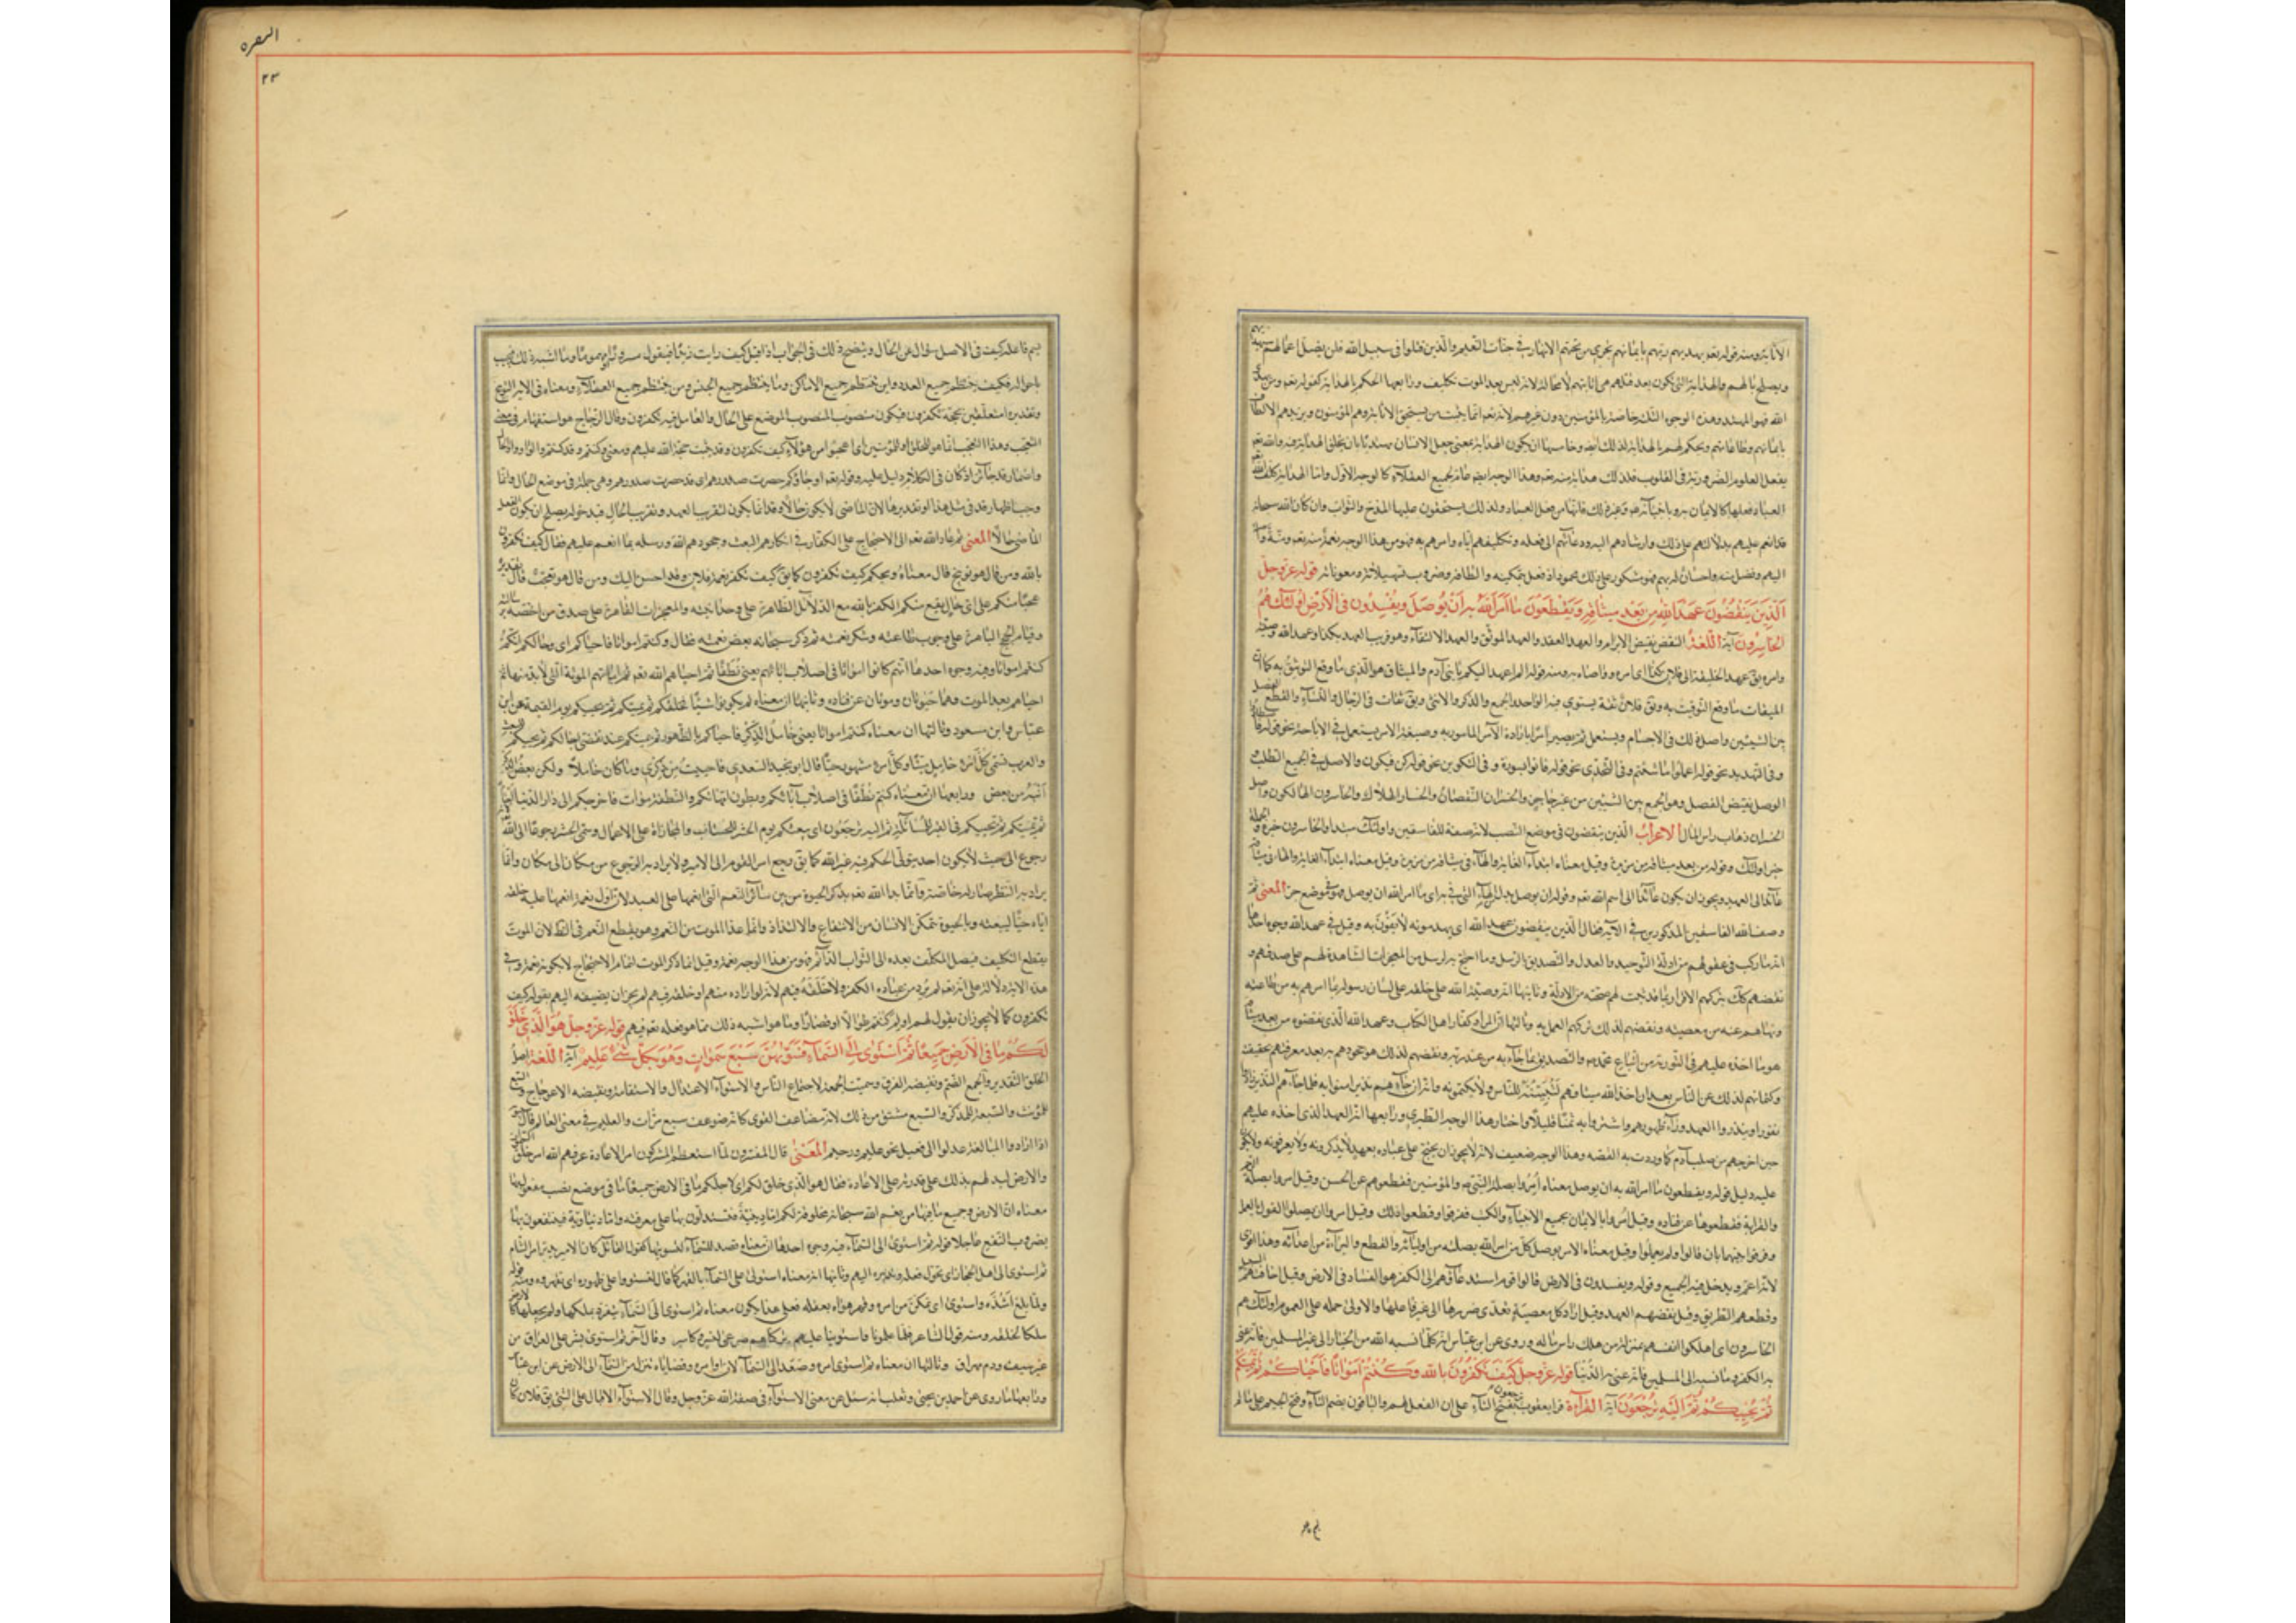 الانابة ومنه قوله تعم يهديهم ربهم بايمانهم تجري من تحتهم الانهار في جنات النعيم والذين قتلوا في سبيل الله فلن يضل اعمالهم سيهديهم
ويصلح بالهم والهداية التي تكون بعد قتلهم هي اثابتهم لا محالة لانه ليس بعد الموت تكليف ورابعها الحكم بالهداية كقوله تعم ومن يهدي
الله فهو المهتد وهذه الوجوه الثلاثة خاصة بالمؤمنين دون غيرهم لانه تعم انما يثيب من يستحق الاثابة وهم المؤمنون ويزيدهم الالطاف
بايمانهم وطاعاتهم ويحكم لهم بالهداية لذلك ايضا وخامسها ان يكون الهداية بمعنى جعل الانسان مهتديا بان يخلق الهداية فيه والله تعم
يفعل العلوم الضرورية في القلوب فذلك هداية منه تعم وهذا الوجه ايضا عام لجميع العقلاء كالوجه الاول واما الهداية التي كلف الله
العباد فعلها كالايمان به وبانبيائه وغير ذلك فانها من فعل العباد ولذلك يستحقون عليها المدح والثواب وان كان الله سبحانه
قد انعم عليهم بدلالتهم على ذلك وارشادهم اليه ودعائهم الى فعله وتكليفهم اياه وامرهم به فهو من هذا الوجه نعمة منه تعم ومنة واصلة
اليهم وفضل منه واحسان لديهم فهو مشكور على ذلك محمود اذ فعل بتمكينه والطافه وضروب تسهيلاته ومعوناته قوله عز وجل
الذين ينقضون عهد الله من بعد ميثاقه ويقطعون ما امر الله به ان يوصل ويفسدون في الارض اولئك هم
الخاسرون آية اللغة النقض نقيض الابرام والعهد العقد والعهد الموثق والعهد الالتقاء وهو قريب العهد بكذا وعهد الله وصيته
وامره يق عهد الخليفة الى فلان بكذا اي امره وواصاه به ومنه قوله الم اعهد اليكم يا بني آدم والميثاق هو الذي ما وقع التوثيق به كما ان
الميقات ما وقع التوقيت به ويق فلان ثقة يستوي فيه الواحد والجمع والذكر والانثى ويق ثقات في الرجال والنساء والقطع الفصل
بين الشيئين واصل ذلك في الاجسام ويستعمل
وفي التهديد نحو قوله اعملوا ما شئتم وفي التحدي نحو قوله فاتوا بسورة وفي التكوين نحو قوله كن فيكون والاصل في الجميع الطلب و
الوصل نقيض الفصل وهو الجمع بين الشيئين من غير حاجز والخسران النقصان والخسار الهلاك والخاسرون الهالكون واصل
الخسران ذهاب راس المال الاعراب الذين ينقضون في موضع النصب لانه صفة للفاسقين واولئك مبتدا والخاسرون خبره والجملة
خبر اولئك وقوله من بعد ميثاقه من مزيدة وقيل معناه ابتداء الغاية والهاء في ميثاقه
عائد الى العهد ويجوز ان يكون عائدا الى اسم الله تعم وقوله ان يوصل بدل من الهاء التي في به اي ما امر الله ان يوصل فهو في موضع جر المعنى ثم
وصف الله الفاسقين المذكورين في الآية فقال الذين ينقضون عهد الله اي يهدمونه لا يفون به وقيل في عهد الله وجوه احدها
انه ما ركب في عقولهم من ادلة التوحيد والعدل والتصديق الرسل وما احتج به لرسله من المعجزات الشاهدة لهم على صدقهم و
نقضهم ذلك تركهم الاقرار بما قد ثبتت لهم صحته من الادلة وثانيها انه وصية الله على خلقه على لسان رسوله بما امرهم به من طاعته
ونهاهم عنه من معصيته ونقضهم لذلك تركهم العمل به وثالثها ان المراد كفار اهل الكتاب وعهد الله الذي نقضوه من بعد ميثاقه
هو ما اخذه عليهم في التورية من اتباع محمد ص والتصديق بما جاء به من عند ربه ونقضهم لذلك هو جحودهم به بعد معرفتهم بحقيقته
وكتمانهم لذلك عن الناس بعد ان اخذ الله ميثاقهم لتبيننه للناس ولا تكتمونه وانه ان جاءهم نذير امنوا به فلما جاءهم النذير ازدادوا
نفورا ونبذوا العهد وراء ظهورهم واشتروا به ثمنا قليلا واختار هذا الوجه الطبري ورابعها انه العهد الذي اخذه عليهم
حين اخرجهم من صلب آدم كما وردت به القصة وهذا الوجه ضعيف لانه لا يجوز ان يحتج على عباده بعهد لا يذكرونه ولا يعرفونه ولا يكون
عليه دليل قوله ويقطعون ما امر الله به ان يوصل معناه امروا بصلة النبي ص والمؤمنين فقطعوهم عن الحسن وقيل امروا بصلة الرحم
والقرابة فقطعوها عن قتادة وقيل امروا بالايمان بجميع الانبياء والكتب ففرقوا وقطعوا ذلك وقيل امروا ان يصلوا القول بالعمل
وفرقوا بينهما بان قالوا ولم يعملوا وقيل معناه الامر بوصل كل من امر الله بصلته من اوليائه والقطع والبراءة من اعدائه وهذا اقوى
لانه اعم ويدخل فيه الجميع وقوله ويفسدون في الارض قالوا قوم استدعاؤهم الى الكفر هو الفساد في الارض وقيل اخافتهم السبيل
وقطعهم الطريق وقيل نقضهم العهد وقيل اراد كل معصية تعدى ضررها الى غير فاعلها والاولى حمله على العموم اولئك هم
الخاسرون اي اهلكوا انفسهم بمنزلة من هلك راس ماله وروي عن ابن عباس ان كل ما نسبه الله من الخسار الى غير المسلمين فانما عنى
به الكفر وما نسبه الى المسلمين فانما عنى به الدنيا قوله عز وجل كيف تكفرون بالله وكنتم امواتا فاحياكم ثم يميتكم
ثم يحييكم ثم اليه ترجعون آية القراءة قرا يعقوب ترجعون بفتح التاء على ان الفعل لهم والباقون بضم التاء وفتح الجيم على ما لم
البقره
٢٣
يسم فاعله كيف في الاصل سؤال عن الحال ويتضح ذلك في الجواب اذا قيل كيف رايت زيدا فيقول مسرورا ام مهموما وما اشبه ذلك فيجيب
باحواله فكيف ينتظم جميع العدد واين ينتظم جميع الاماكن وما ينتظم جميع الجنس ومن ينتظم جميع العقلاء ومعناه في الآية التوبيخ
وتقديره امتعلقين بحجة تكفرون فيكون منصوب الموضع على الحال والعامل فيه تكفرون وقال الزجاج هو استفهام في معنى
التعجب وهذا التعجب انما هو للخلق او للمؤمنين اي اعجبوا من هؤلاء كيف تكفرون وقد ثبتت حجة الله عليهم ومعنى وكنتم وقد كنتم والواو واو الحال
واضمار قد جائز اذ كان في الكلام دليل عليه وقوله تعم اوجاؤكم حصرت صدورهم اي قد حصرت صدورهم وهي جملة في موضع الحال وانما
وجب اظهار قد في مثل هذا او تقديرها لان الماضي لا يكون حالا وقد انما يكون لتقريب العهد وتقريب الحال فبدخوله يصلح ان يكون الفعل
الماضي حالا المعنى ثم عاد الله تعم الى الاحتجاج على الكفار في انكارهم البعث وجحودهم الله ورسله بما انعم عليهم فقال كيف تكفرون
بالله ومن قال هو توبيخ قال معناه ويحكم كيف تكفرون كما يق كيف تكفر نعمة فلان وقد احسن اليك ومن قال هو تعجب قال تقديره
عجبا منكم على اي حال يقع منكم الكفر بالله مع الدلائل الظاهرة على وحدانيته والمعجزات القاهرة على صدق من اختصه برسالته
وقيام الحجج الباهرة على وجوب طاعته وشكر نعمته ثم ذكر سبحانه بعض نعمه فقال وكنتم امواتا فاحياكم اي وحالكم انكم
كنتم امواتا وفيه وجوه احدها انهم كانوا امواتا في اصلاب ابائهم يعني نطفا ثم احياهم الله تعم ثم اماتهم الموتة التي لا بد منها ثم
احياهم بعد الموت وهما حيوتان وموتتان عن قتادة وثانيها ان معناه لم تكونوا شيئا فخلقكم ثم يميتكم ثم يحييكم يوم القيمة عن ابن
عباس وابن مسعود وثالثها ان معناه كنتم امواتا يعني خاملي الذكر فاحياكم بالظهور ثم يميتكم عند تقضي اجالكم ثم يحييكم للبعث
والعرب تسمي كل امرء خامل ميتا وكل امرء مشهور حيا قال ابو نخيلة السعدي فاحييت من ذكري وما كان خاملا ولكن بعض الذكر
انبه من بعض ورابعها ان معناه كنتم نطفا في اصلاب آبائكم وبطون امهاتكم والنطفة موات فاخرجكم الى دار الدنيا احياء
ثم يميتكم ثم يحييكم في القبر للمسائلة ثم اليه ترجعون اي يبعثكم يوم الحشر للحساب والمجازاة على الاعمال وسمي الحشر رجوعا الى الله لانه
رجوع الى حيث لا يكون احد يتولى الحكم فيه غير الله كما يق رجع امر القوم الى الامير ولا يراد به الرجوع من مكان الى مكان وانما
يراد به ان النظر صار له خاصة وانما بدا الله تعم بذكر الحيوة من بين سائر النعم التي انعمها على العبد لان اول نعمة انعمها عليه خلقه
اياه حيا لينعمه وبالحيوة يتمكن الانسان من الانتفاع والالتذاذ وانما عد الموت من النعم وهو يقطع النعم في الظ لان الموت
يقطع التكليف فيصل المكلف بعده الى الثواب الدائم فهو من هذا الوجه نعمة وقيل انما ذكر الموت لتمام الاحتجاج لا لكونه نعمة وفي
هذه الآية دلالة على انه تعم لم يرد من عباده الكفر ولا خلقه فيهم لانه لو اراده منهم او خلقه فيهم لم يجز ان يضيفه اليهم بقوله كيف
تكفرون كما لا يجوز ان يقول لهم لم كنتم طوالا او قصارا وما اشبه ذلك مما هو فعله تعم فيهم قوله عز وجل هو الذي خلق
لكم ما في الارض جميعا ثم استوى الى السماء فسويهن سبع سموات وهو بكل شيء عليم آية اللغة اصل
الخلق التقدير والجمع الضم ونقيضه الفرق وسميت الجمعة لاجتماع الناس والاستواء الاعتدال والاستقامة ونقيضه الاعوجاج والسبع
للمؤنث والسبعة للمذكر والسبع مشتق من ذلك لانه مضاعف القوى كانه ضوعف سبع مرات والعليم في معنى العالم قال سيبويه
اذا ارادوا المبالغة عدلوا الى فعيل نحو عليم ورحيم المعنى قال المفسرون لما استعظم المشركون امر الاعادة عرفهم الله امر خلق السموات
والارض ليدلهم بذلك على قدرته على الاعادة فقال هو الذي خلق لكم اي لاجلكم ما في الارض جميعا ما في موضع نصب مفعول بها
معناه ان الارض وجميع ما فيها من نعم الله سبحانه مخلوقة لكم اما دينية فتستدلون بها على معرفته واما دنياوية فينتفعون بها
بضروب النفع عاجلا قوله ثم استوى الى السماء فيه وجوه احدها ان معناه قصد للسماء لتسويتها كقول القائل كان الامير يدبر امر الشام
ثم استوى الى اهل الحجاز اي تحول فعله وتدبيره اليهم وثانيها انه معناه استولى على السماء بالقهر كما قال لتستووا على ظهوره اي تقهروه ومنه قوله
ولما بلغ اشده واستوى اي تمكن من امره وقهر هواه بعقله فعلى هذا يكون معناه ثم استوى الى السماء في تفرده بملكها ولم يجعلها كالارض
ملكا لخلقه ومنه قول الشاعر فلما علونا واستوينا عليهم تركناهم صرعى لنسر وكاسر وقال آخر ثم استوى بشر على العراق من
غير سيف ودم مهراق وثالثها ان معناه ثم استوى امره وصعد الى السماء لان اوامره وقضاياه تنزل من السماء الى الارض عن ابن عباس
ورابعها ما روي عن احمد بن يحيى وثعلب انه سئل عن معنى الاستواء في صفة الله عز وجل وقال الاستواء الاقبال على الشيء يق فلان كان